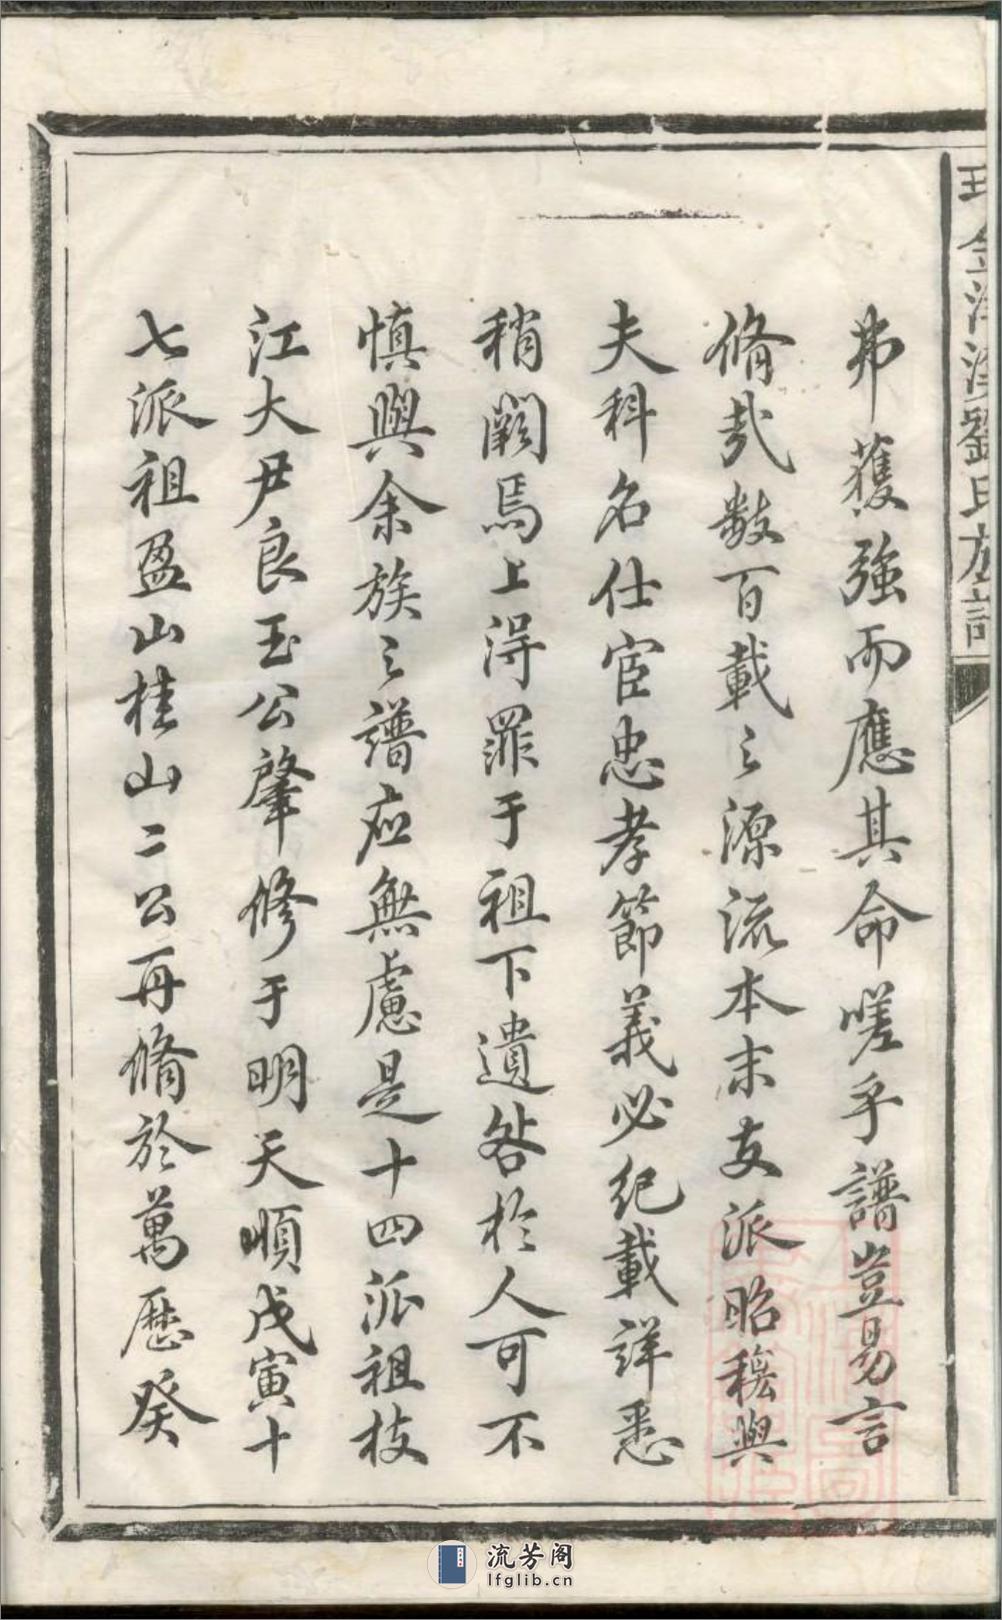 金洋溪劉氏族譜
弗獲強而應其命嗟乎譜豈易言
脩哉數百載之源流本末支派昭穆與
夫科名仕宦忠孝節義必紀載詳悉
稍闕焉上淂罪于祖下遺咎於人可不
慎與余族之譜應無慮是十四派祖枝
江大尹良玉公肇修于明天順戊寅十
七派祖盈山桂山二公再脩於萬曆癸
流芳阁
lfglib.cn